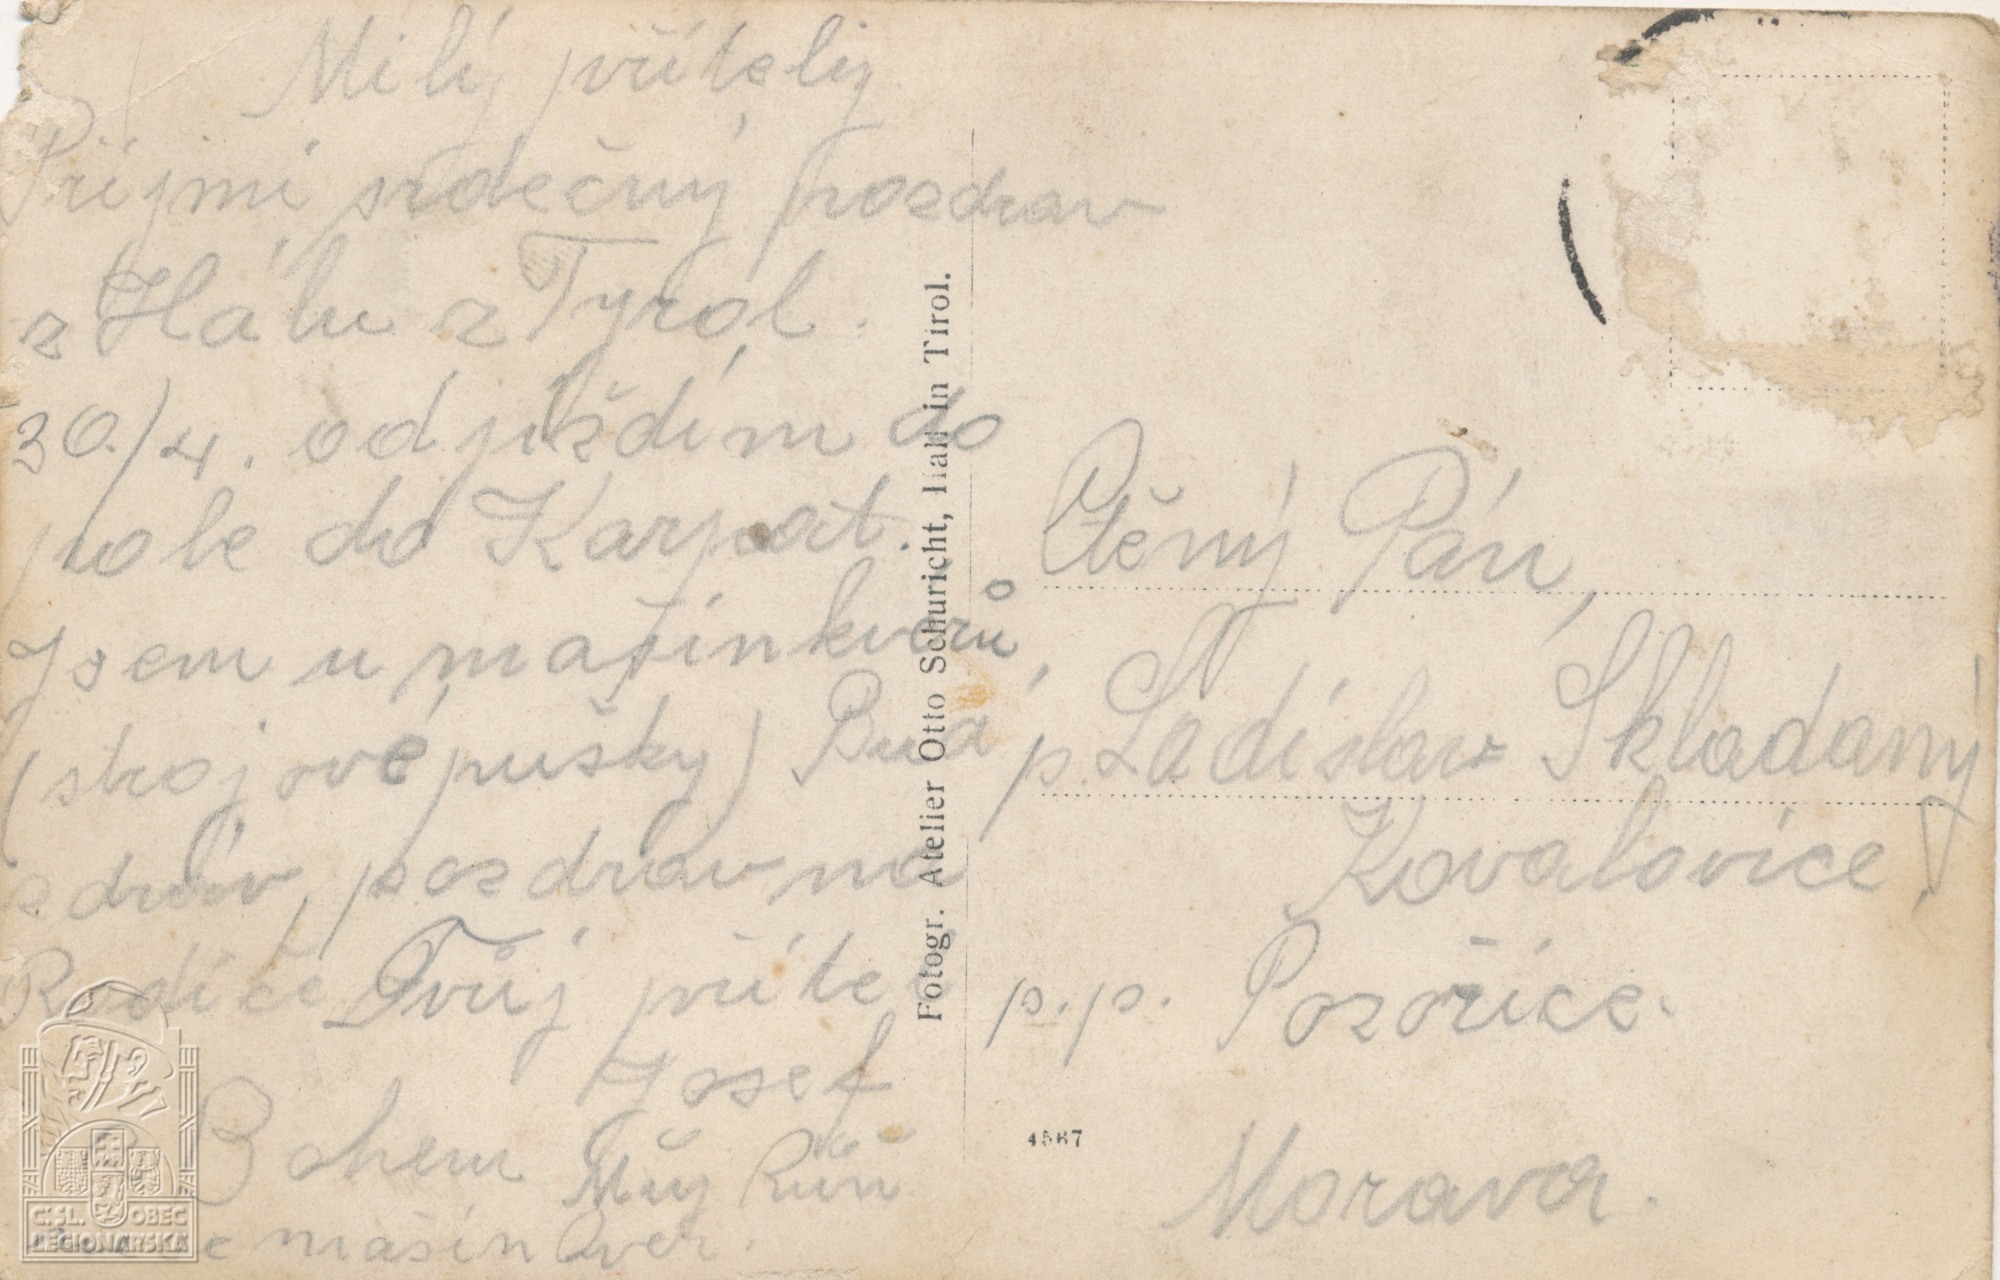 Milý příteli,
Přijmi srdečný pozdrav
z Hálu z Tyról.
30./4. odjíždím do
pole do Karpat.
Jsem u mašinkverů,
(strojové pušky) Buď
zdráv, pozdrav na
Rodiče Tvůj přítel
Josef
S Bohem
mašinkver.
Fotogr. Atelier Otto Schuricht, Hall in Tirol.
Ctěný Pán,
p. Ladislav Skladaný
Kovalovice!
p.p. Pozořice.
Morava.
4567
Č.SL. OBEC
LEGIONÁŘSKÁ